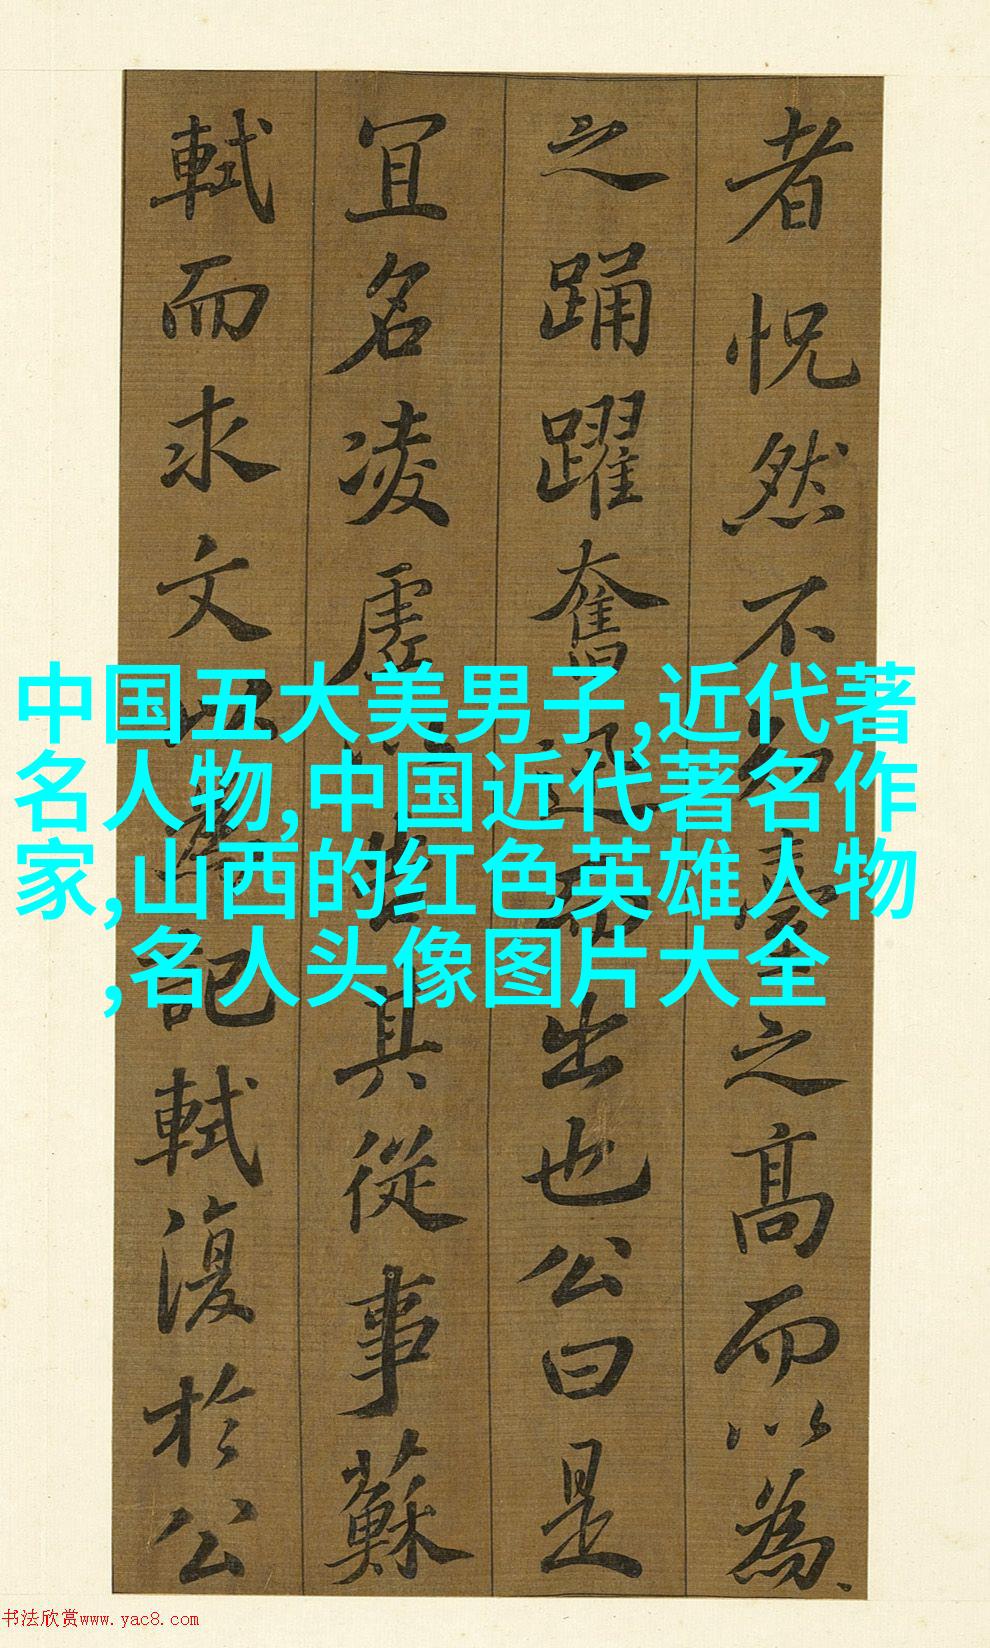 者怳然不知臺之高而以為
之踊躍奮迅而出也公曰是
宜名凌虛以告其從事蘇
軾而求文以為記軾復於公
中国五大美男子,近代著
名人物,中国近代著名作
家,山西的红色英雄人物
,名人头像图片大全
书法欣赏www.yac8.com